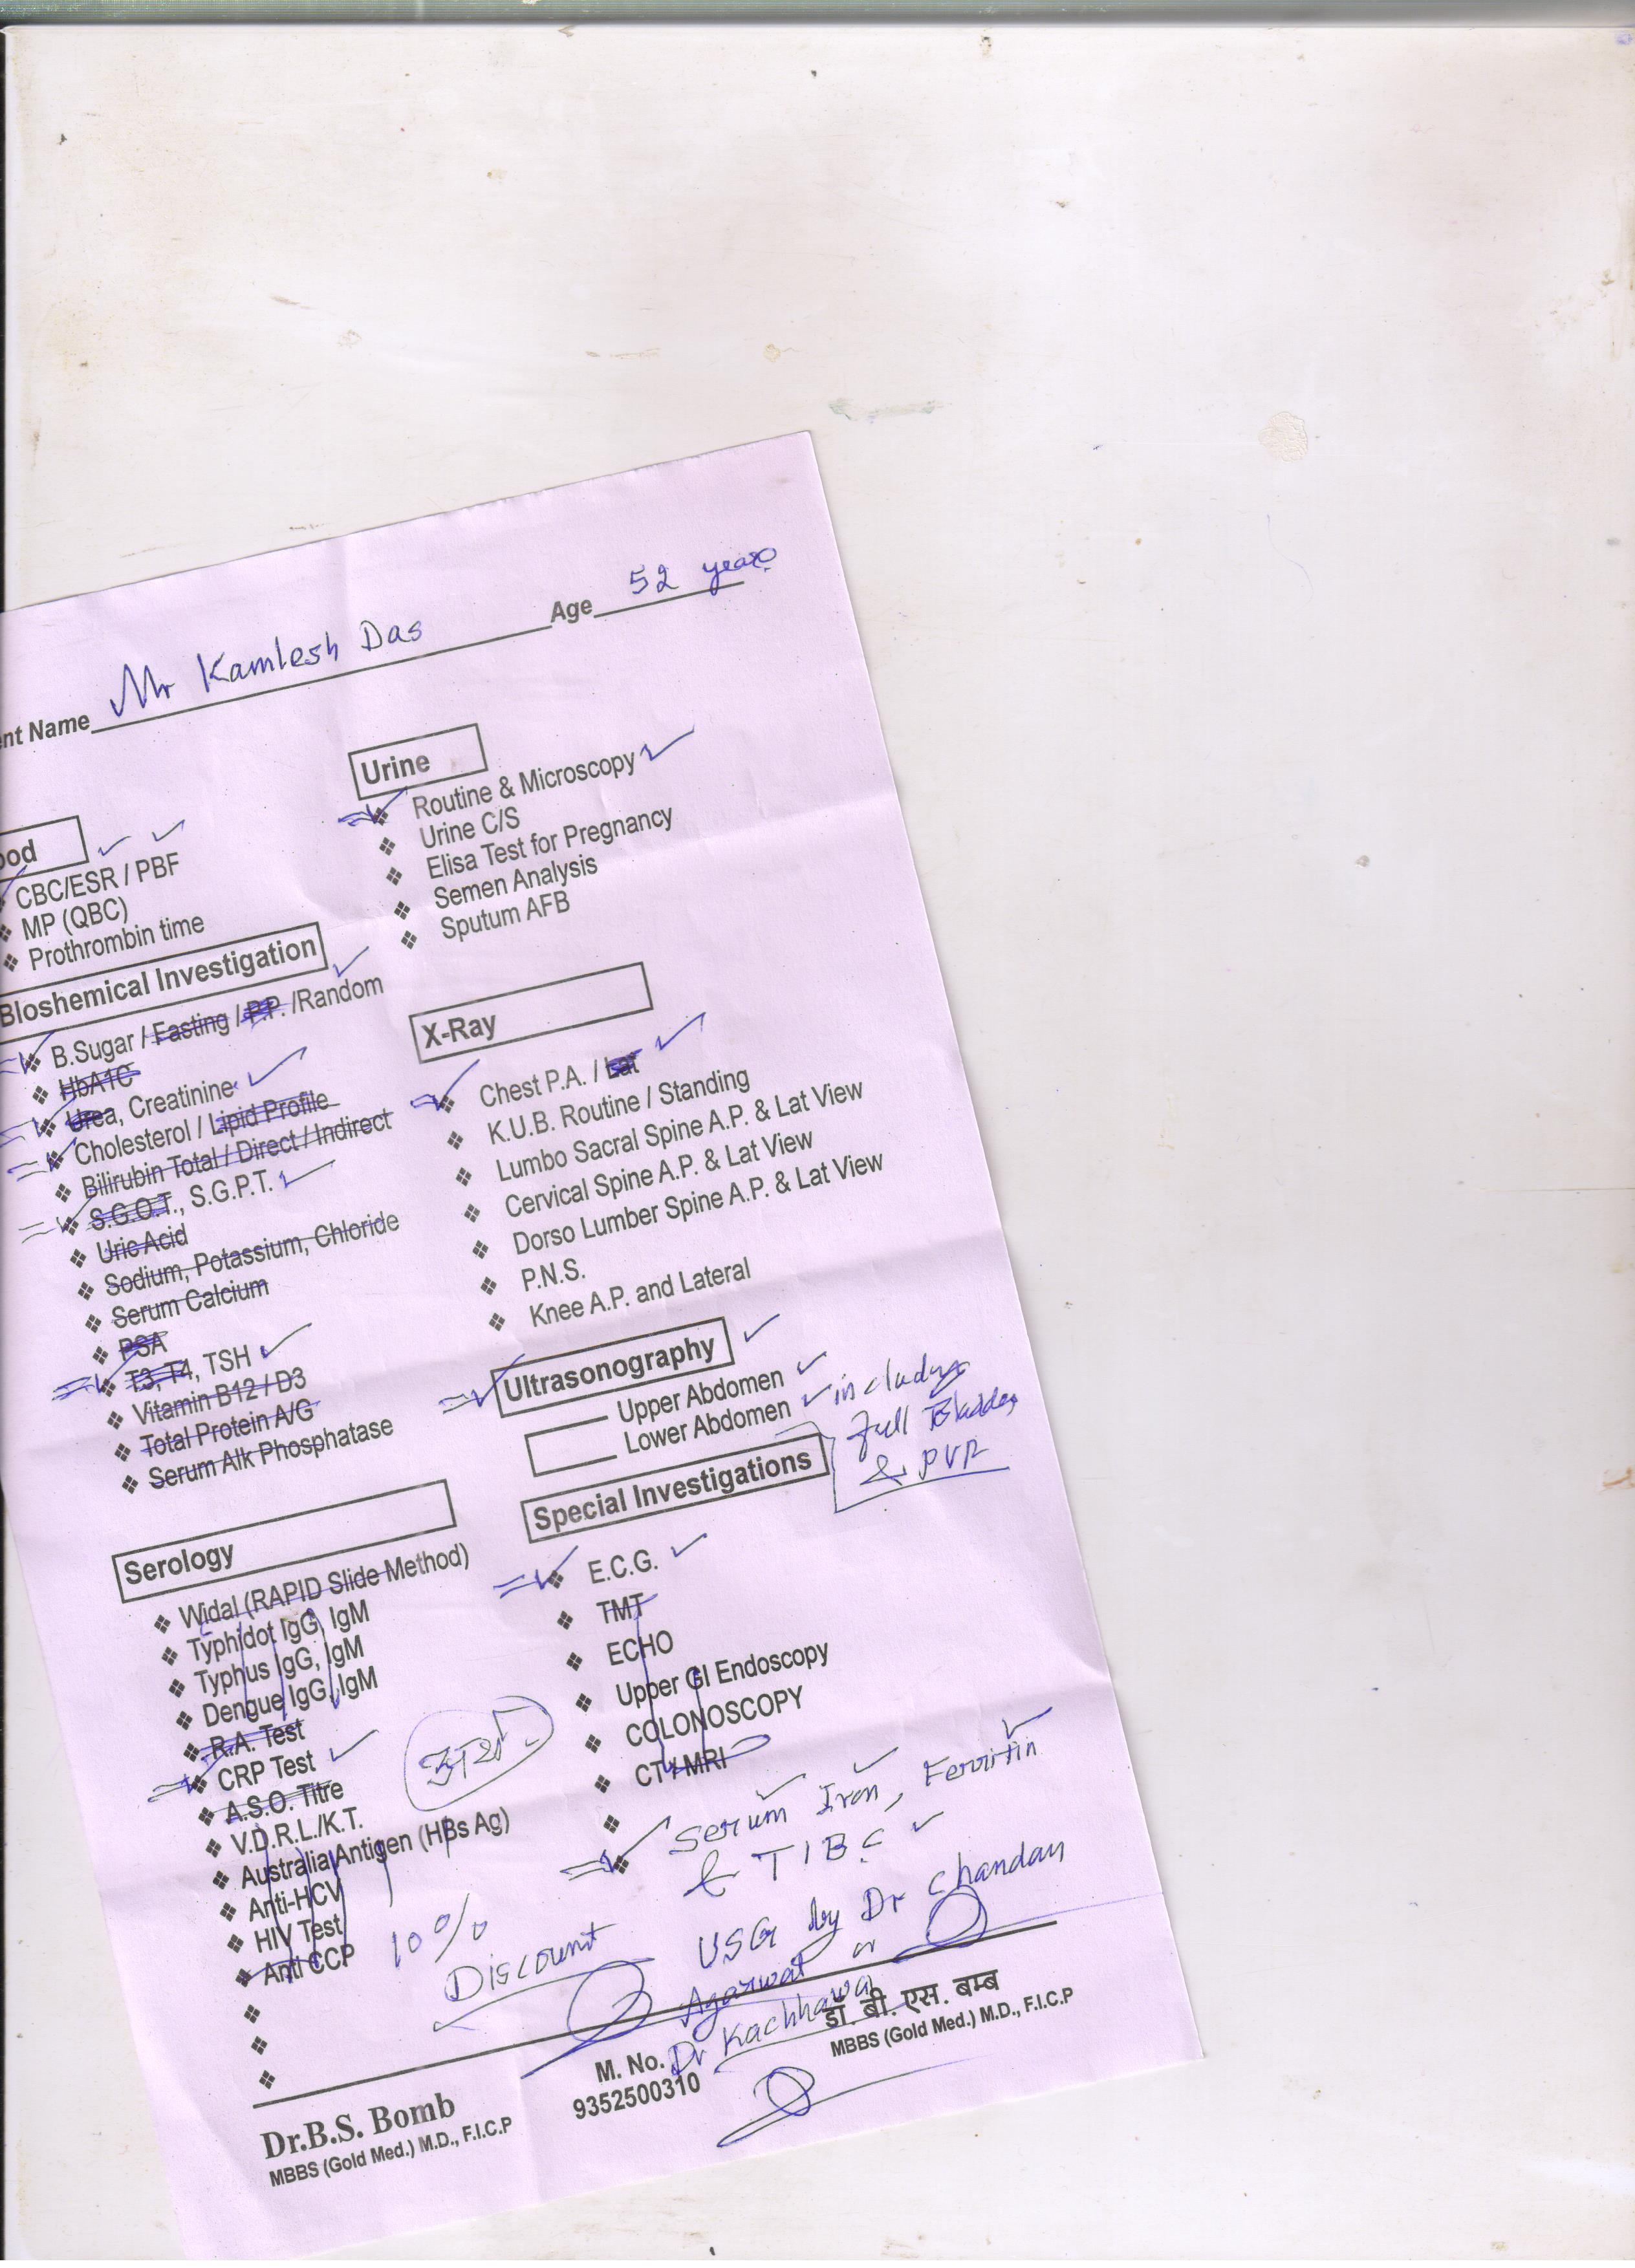 ent Name Mr Kamlesh Das Age 52 years
ood
CBC/ESR / PBF
MP (QBC)
Prothrombin time
Bloshemical Investigation
B.Sugar / Fasting / P.P. /Random
HbA1C
Urea, Creatinine
Cholesterol / Lipid Profile
Bilirubin Total / Direct / Indirect
S.G.O.T., S.G.P.T.
Uric Acid
Sodium, Potassium, Chloride
Serum Calcium
PSA
T3, T4, TSH
Vitamin B12 / D3
Total Protein A/G
Serum Alk Phosphatase
Serology
Widal (RAPID Slide Method)
Typhidot IgG, IgM
Typhus IgG, IgM
Dengue IgG, IgM
R.A. Test
CRP Test
A.S.O. Titre
V.D.R.L./K.T.
Australia Antigen (HBs Ag)
Anti-HCV
HIV Test
Anti CCP
10%
Discount
Urine
Routine & Microscopy
Urine C/S
Elisa Test for Pregnancy
Semen Analysis
Sputum AFB
X-Ray
Chest P.A. / Lat
K.U.B. Routine / Standing
Lumbo Sacral Spine A.P. & Lat View
Cervical Spine A.P. & Lat View
Dorso Lumber Spine A.P. & Lat View
P.N.S.
Knee A.P. and Lateral
Ultrasonography
Upper Abdomen
Lower Abdomen including
Full Bladder
& PVR
Special Investigations
E.C.G.
TMT
ECHO
Upper GI Endoscopy
COLONOSCOPY
CT / MRI
Serum Iron, Ferritin
& TIBC
USG by Dr Chandan
Agarwal or
Dr Kachhawa
डॉ. बी. एस. बम्ब
MBBS (Gold Med.) M.D., F.I.C.P
M. No.
9352500310
Dr.B.S. Bomb
MBBS (Gold Med.) M.D., F.I.C.P